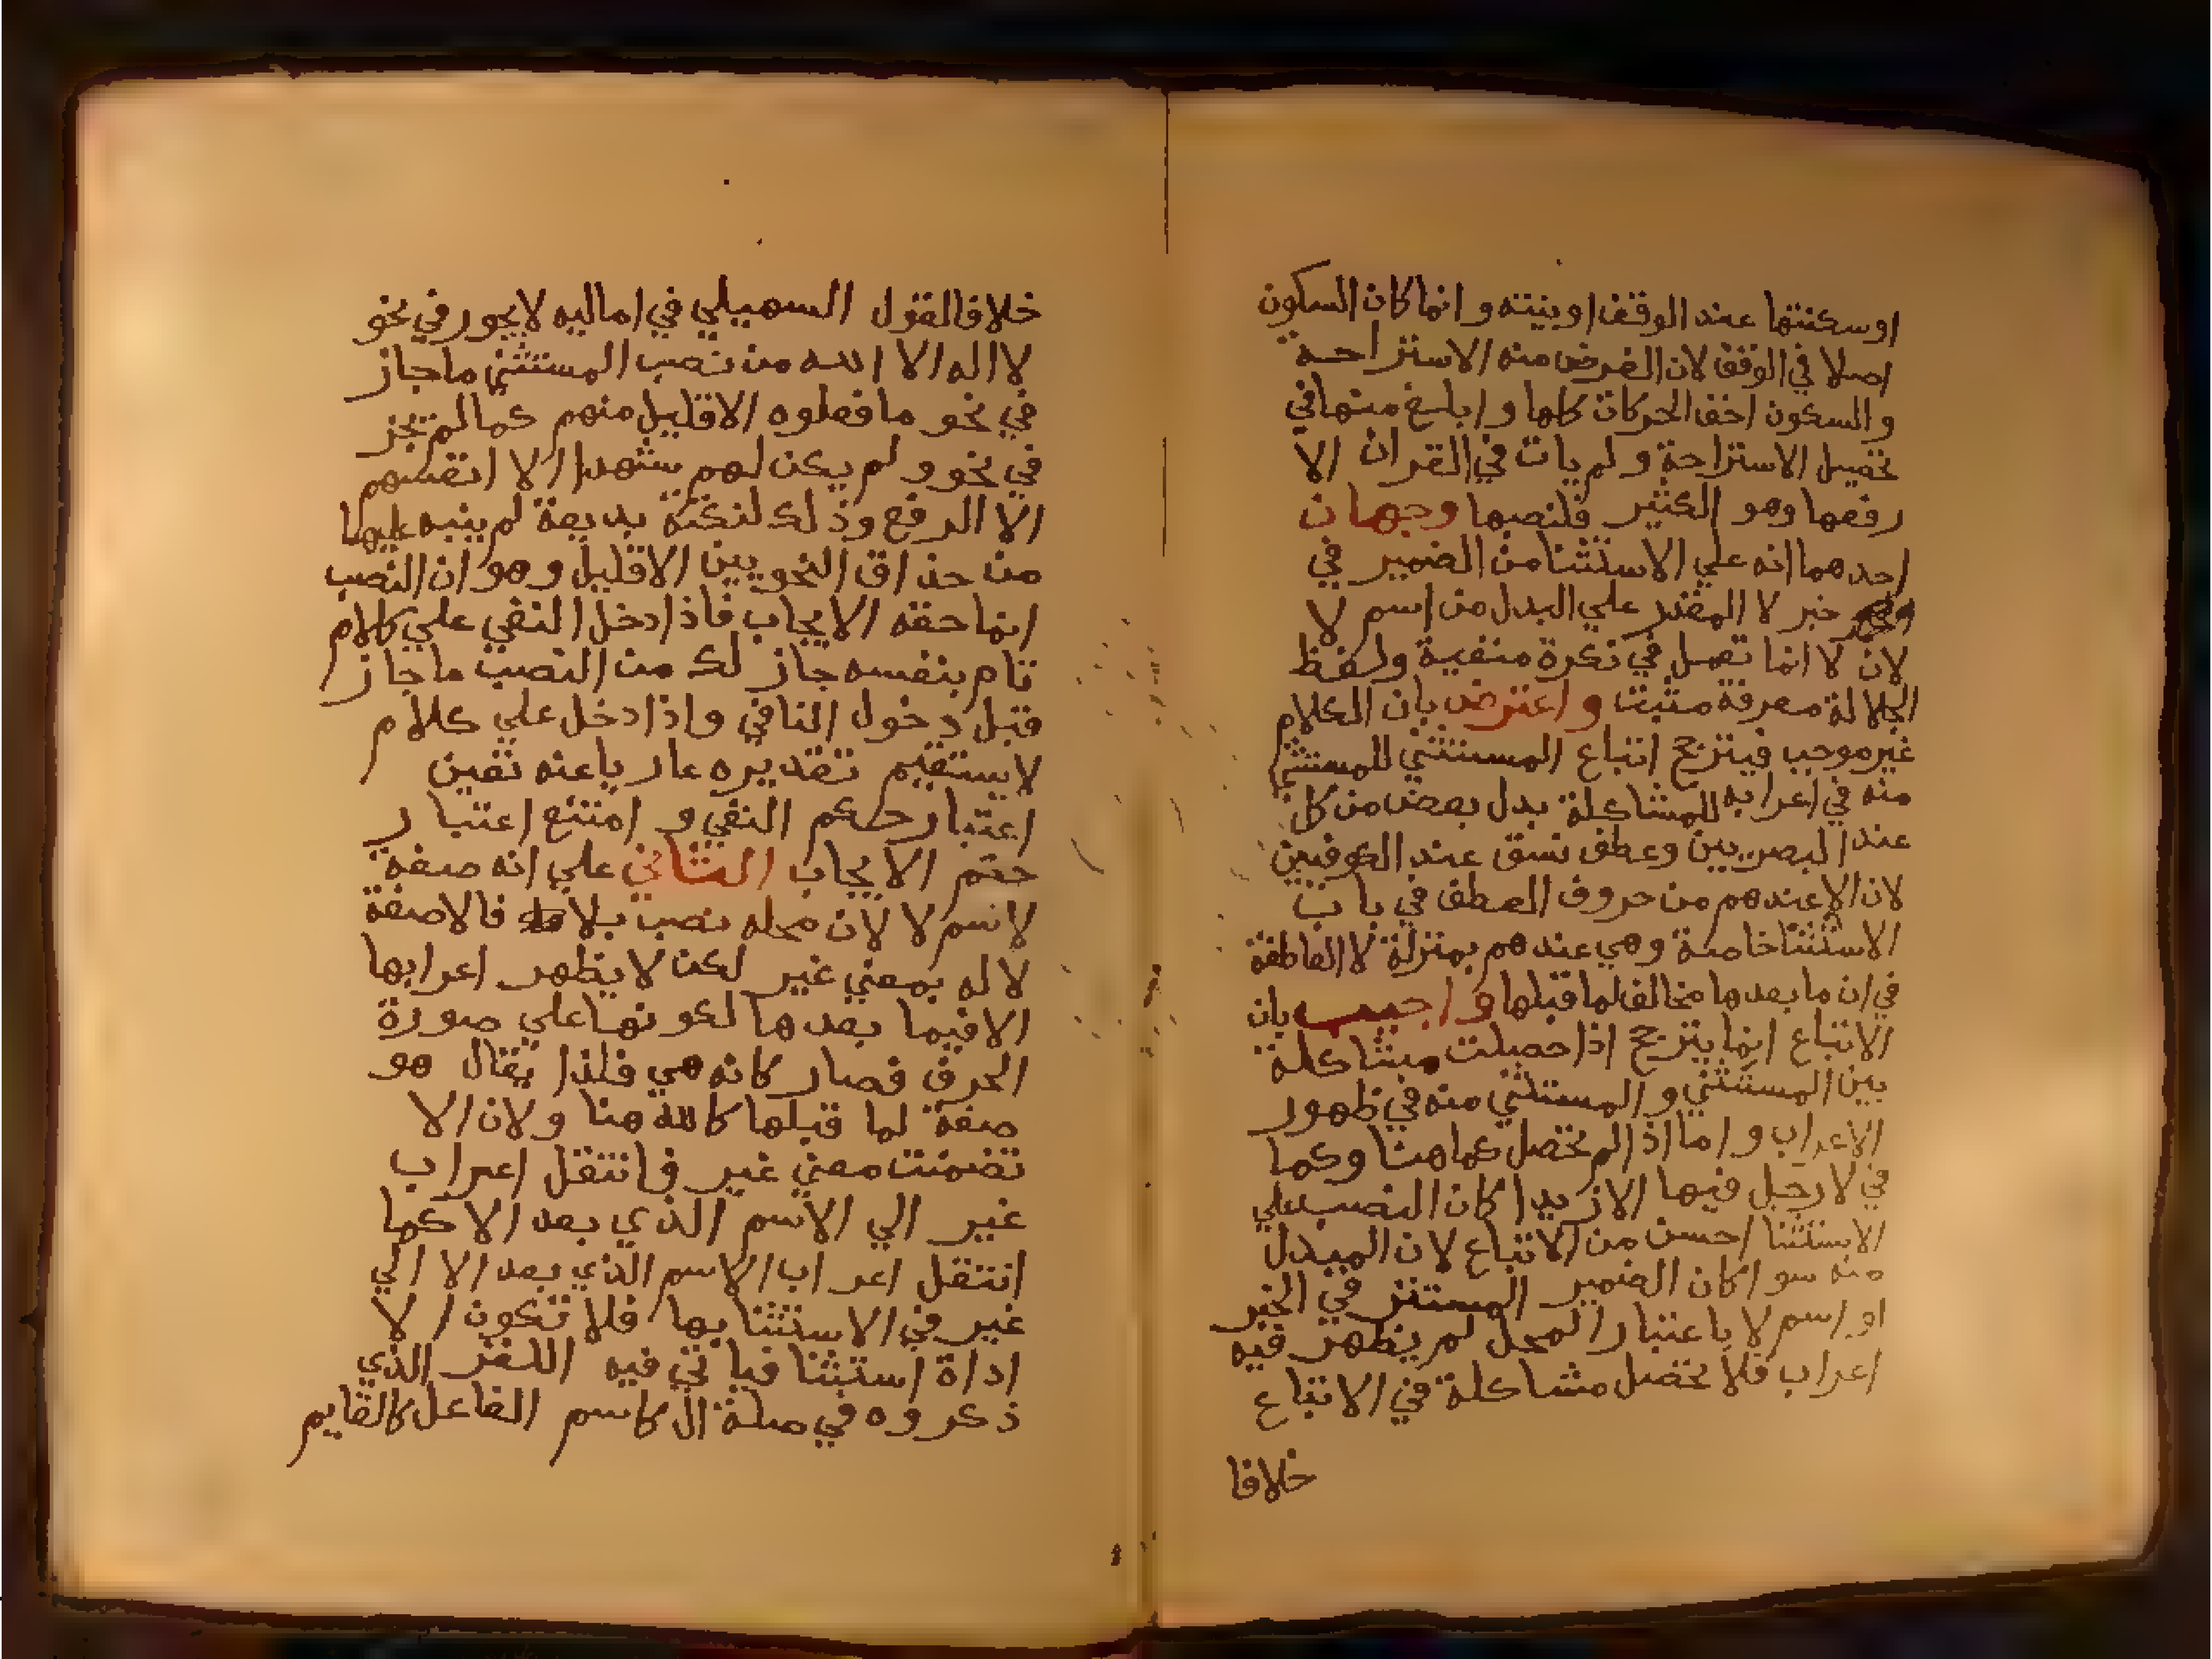 اوسكنتها عند الوقف او بنيته و انما كان السكون
اصلا في الوقف لان الغرض منه الاستراحة
و السكون اخف الحركات كلها و ابلغ منها في
تحصيل الاستراحة و لم يات في القران الا
رفعها وهو الكثير فلنصبها وجهان
احدهما انه علي الاستثنا من الضمير في
خبر لا المقدر علي البدل من اسم لا
لان لا انما تعمل في نكرة منفية ولفظ
الجلالة معرفة مثبت و اعترض بان الكلام
غير موجب فيترجح اتباع المستثني للمستثني
منه في اعرابه للمشاكلة بدل بعض من كل
عند البصريين وعطف نسق عند الكوفيين
لان الا عندهم من حروف العطف في باب
الاستثنا خاصة وهي عندهم بمنزلة لا العاطفة
في ان ما بعدها مخالف لما قبلها و اجيب بان
الاتباع انما يترجح اذا حصلت مشاكلة
بين المستثني و المستثني منه في ظهور
الاعراب و اما اذا لم تحصل كما هنا وكما
في لا رجل فيها الا زيدا كان النصب علي
الاستثنا احسن من الاتباع لان المبدل
منه سوا كان الضمير المستتر في الخبر
او اسم لا باعتبار المحل لم يظهر فيه
اعراب فلا تحصل مشاكلة في الاتباع
خلافا
خلافا لقول السهيلي في اماليه لا يجوز في نحو
لا اله الا الله من نصب المستثني ما جاز
في نحو ما فعلوه الا قليل منهم كما لم تجز
في نحو و لم يكن لهم شهدا الا انفسهم
الا الرفع وذلك لنكتة بديعة لم ينبه عليها
من حذاق النحويين الا قليل و هو ان النصب
انما حقه الايجاب فاذا دخل النفي علي كلام
تام بنفسه جاز لك من النصب ما جاز
قبل دخول النافي واذا دخل علي كلام
لا يستقيم تقديره عاريا عنه تعين
اعتبار حكم النفي و امتنع اعتبار
حكم الايجاب الثاني علي انه صفة
لاسم لا لان محله نصب بلا فالا صفة
لا له بمعني غير لكن لا يظهر اعرابها
الا فيما بعدها لكونها علي صورة
الحرف فصار كانه هي فلذا يقال هو
صفة لما قبلها كالله هنا ولان الا
تضمنت معني غير فانتقل اعراب
غير الي الاسم الذي بعد الا كما
انتقل اعراب الاسم الذي بعد الا الي
غير في الاستثنا بها فلا تكون الا
اداة استثنا فياتي فيه اللغز الذي
ذكروه في صلة ال كاسم الفاعل كالقايم